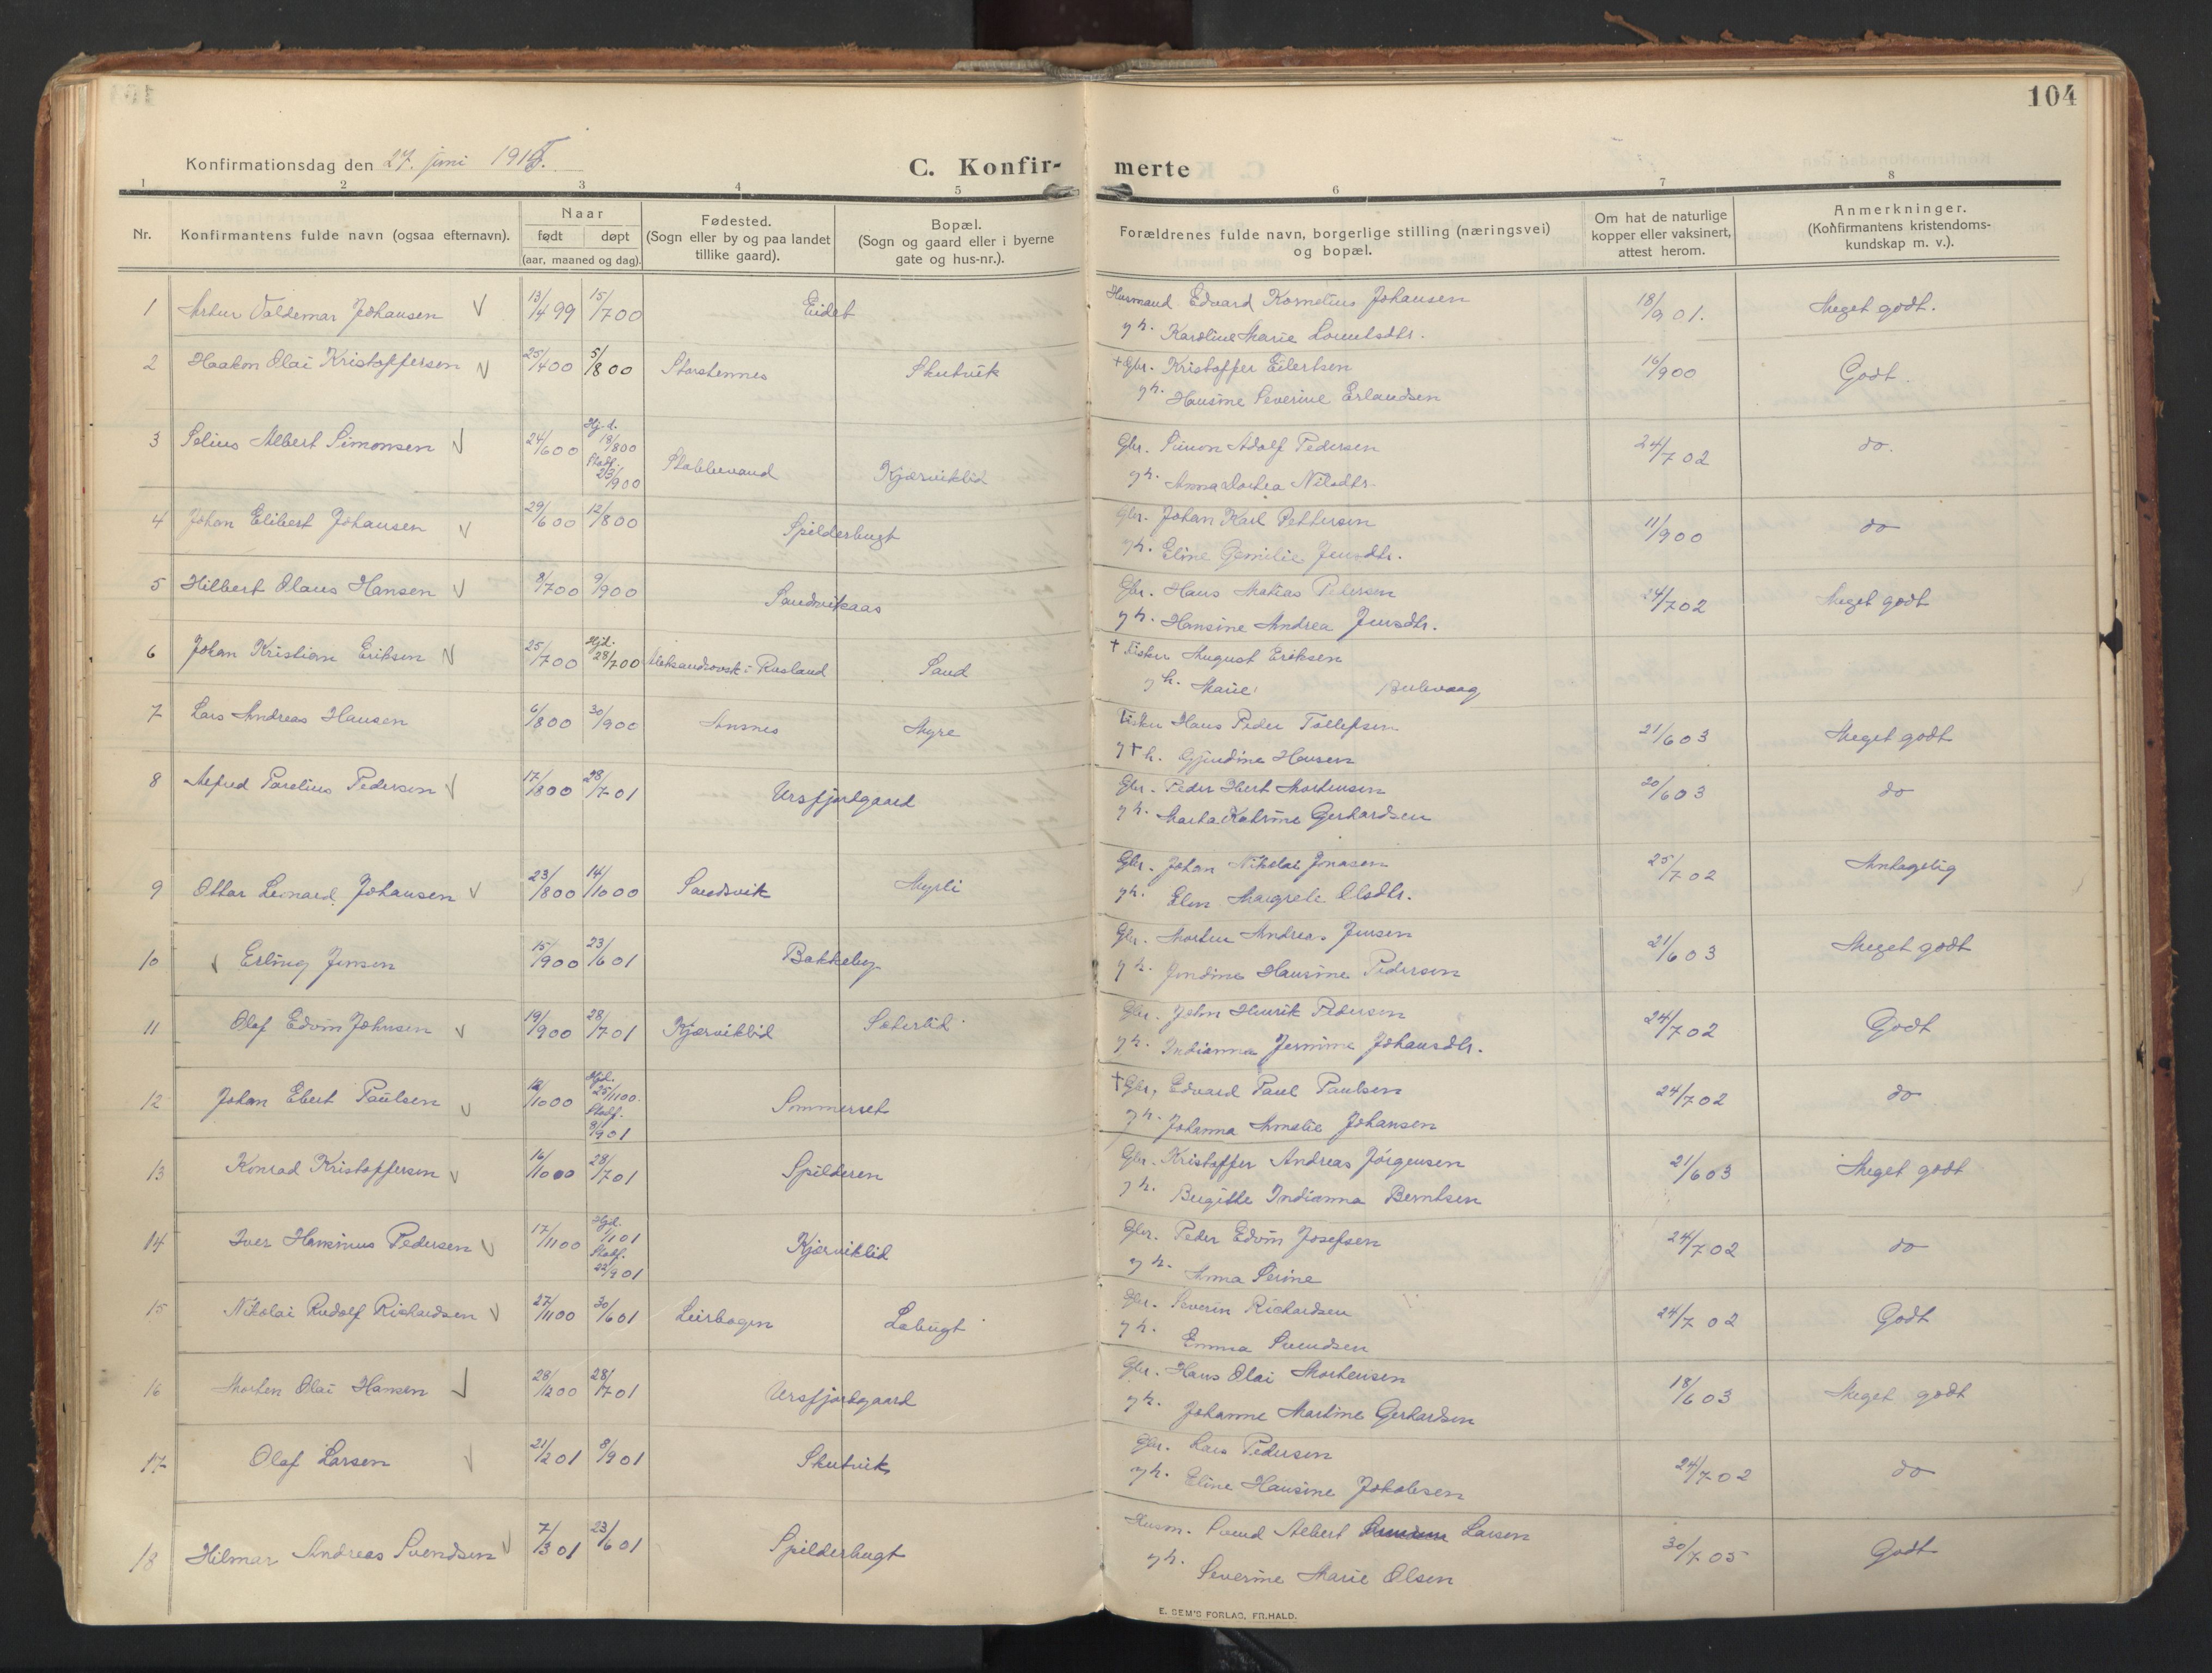 104
Konfirmationsdag den 27. juni 1915.
C. Konfir- merte
1 2 3 4 5 6 7 8
Nr.
Konfirmantens fulde navn (ogsaa efternavn).
Naar
født døpt
(aar, maaned og dag).
Fødested.
(Sogn eller by og paa landet
tillike gaard).
Bopæl.
(Sogn og gaard eller i byerne
gate og hus-nr.).
Forældrenes fulde navn, borgerlige stilling (næringsvei)
og bopæl.
Om hat de naturlige
kopper eller vaksinert,
attest herom.
Anmerkninger.
(Konfirmantens kristendoms-
kundskap m. v.).
1 Artur Valdemar Johansen 13/4 99 15/7 00 Eidet Husmand Edvard Kornelius Johansen 18/9 01. Meget godt.
g h. Karoline Marie
2 Haakon Olai Kristoffersen 25/4 00 5/8 00 Storstennes Skutvik + Gbr. Kristoffer Eilertsen 16/9 00 Godt.
g h. Hansine Severine Erlandsen
3 Selius Albert Simonsen 24/6 00 Hj.d. 18/8 00 Stadf. 23/9 00 Stabbevand Kjærviklid Gbr. Simon Adolf Pedersen 24/7 02 do.
g h. Anna Dortea Nilsdtr.
4 Johan Elibert Johansen 29/6 00 12/8 00 Spilderbugt Gbr. Johan Karl Pettersen 11/9 00 do
g h. Eline Emilie Jensdtr.
5 Hilbert Olaus Hansen 8/7 00 9/9 00 Sandvikaas Gbr. Hans Matias Petersen 24/7 02 Meget godt
g h. Hansine Andrea Jensdtr.
6 Johan Kristian Eriksen 25/7 00 Hjd. 28/7 00 Aleksandrovsk i Rusland Sand + Fisker August Eriksen
g h. Marie
7 Lars Andreas Hansen 6/8 00 30/9 00 Ansnes Myre Fisker Hans Peder Tollefsen 21/6 03 Meget godt
g + h. Gjurdine Hansen
8 Alfred Parelius Pedersen 17/8 00 28/7 01 Ursfjordgaard Gbr. Peder Hbert Mortensen 20/6 03 do
g h. Marta Katrine Gerhardsen
9 Ottar Leonard Johansen 23/8 00 14/10 00 Sandsvik Myrli Gbr. Johan Nikolai Jonasen 25/7 02 Antagelig
g h. Elen Margrete Olsdtr.
10 Erling Jensen 15/9 00 23/6 01 Bakkeby Gbr. Morten Andreas Jensen 21/6 03 Meget godt
g h. Jondine Hansine Pedersen
11 Olaf Edvin Johnsen 19/9 00 28/7 01 Kjærviklid Sæterlid Gbr. John Henrik Pedersen 24/7 02 Godt
g h. Indianna Jermine Johansdtr.
12 Johan Ebert Paulsen /10 00 Hjd. 25/11 00. Stadf. 8/9 01 Sommerset + Gbr. Edvard Paul Paulsen 24/7 02 do
g h. Johanna Amalie Johansen
13 Konrad Kristoffersen 16/10 00 28/7 01 Spilderen Gbr. Kristoffer Andreas Jörgensen 21/6 03 Meget godt
g h. Birgitte Indianna Berntsen
14 Iver Hansinus Pedersen 17/11 00 Hjd. 1/1 01 Stadf. 22/9 01 Kjærviklid Gbr. Peder Edvin Josefsen 24/7 02 do
g h. Anna Serine
15 Nikolai Rudolf Richardsen 27/11 00 30/6 01 Leirbogen Labugt Gbr. Severin Richardsen 24/7 02 Godt
g h. Emma Svendsen
16 Morten Olai Hansen 28/12 00 28/7 01 Ursfjordgaard Gbr. Hans Olai Mortensen 18/6 03 Meget godt
g h. Johanne Martine Gerhardsen
17 Olaf Larsen 21/2 01 8/9 01 Skutvik Gbr. Lars Pedersen 24/7 02 do
g h. Eline Hansine Jakobsen
18 Hilmar Andreas Svendsen 7/3 01 23/6 01 Spilderbugt Husm. Svend Albert Larsen 30/7 05 Godt
g h. Severine Marie Olsen
E. SEM'S FORLAG, FR.HALD.